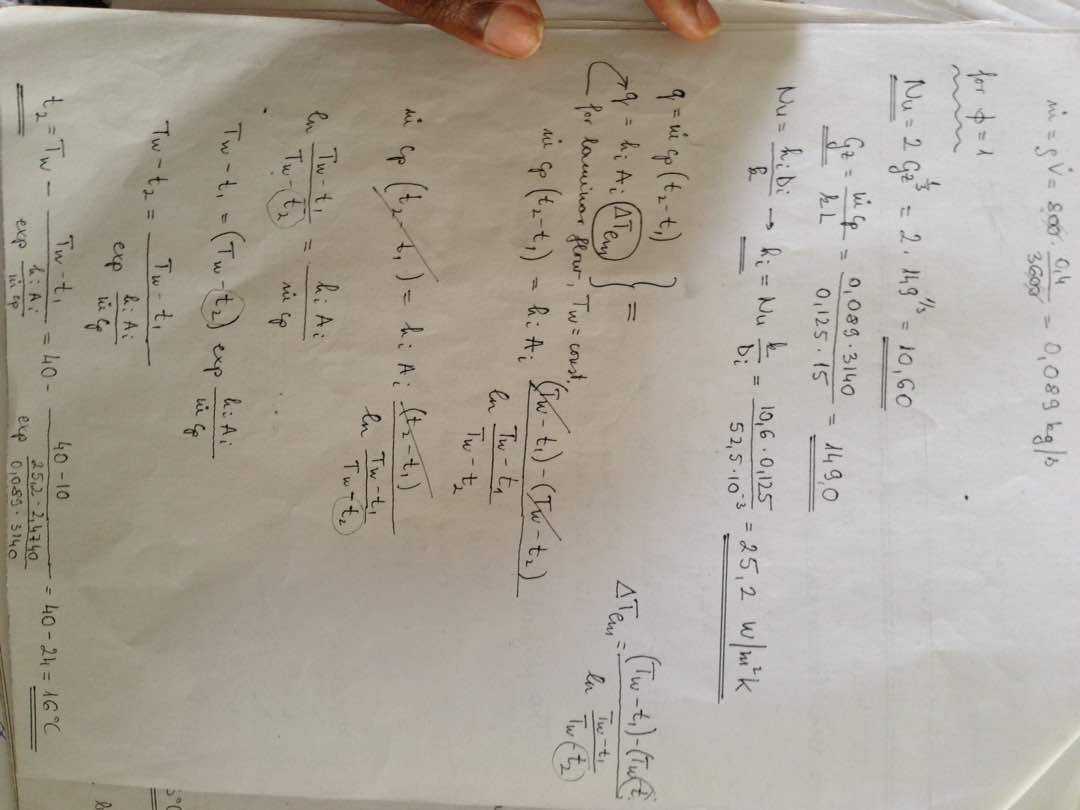 ṁ = ρ V̇ = 800 · 0,4 / 3600 = 0,089 kg/s
for φ = 1
Nu = 2 Gz^1/3 = 2 · 149^1/3 = 10,60
Gz = ṁ cp / k L = 0,089 · 3140 / 0,125 · 15 = 149,0
Nu = hi Di / k → hi = Nu k / Di = 10,6 · 0,125 / 52,5 · 10^-3 = 25,2 W/m²K
q = ṁ cp (t2 - t1)
q = hi Ai ΔTlm } =
for laminar flow, Tw = const.
ΔTlm = (Tw - t1) - (Tw - t2) / ln Tw - t1 / Tw - t2
ṁ cp (t2 - t1) = hi Ai (Tw - t1) - (Tw - t2) / ln Tw - t1 / Tw - t2
ṁ cp (t2 - t1) = hi Ai (t2 - t1) / ln Tw - t1 / Tw - t2
ln Tw - t1 / Tw - t2 = hi Ai / ṁ cp
Tw - t1 = (Tw - t2) exp hi Ai / ṁ cp
Tw - t2 = Tw - t1 / exp hi Ai / ṁ cp
t2 = Tw - Tw - t1 / exp hi Ai / ṁ cp = 40 - 40 - 10 / exp 25,2 · 2,4740 / 0,089 · 3140 = 40 - 24 = 16°C